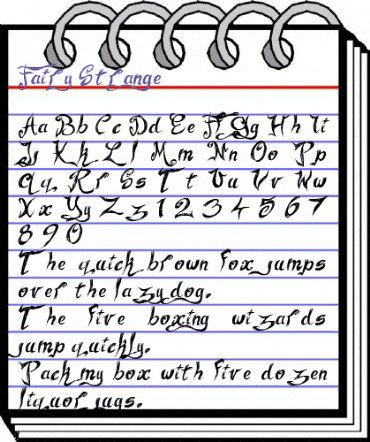 Fairy Strange
Aa Bb Cc Dd Ee Ff Gg Hh Ii
Jj Kk Ll Mm Nn Oo Pp
Qq Rr Ss Tt Uu Vv Ww
Xx Yy Zz 1 2 3 4 5 6 7
8 9 0
The quick brown fox jumps
over the lazy dog.
The five boxing wizards
jump quickly.
Pack my box with five dozen
liquor jugs.